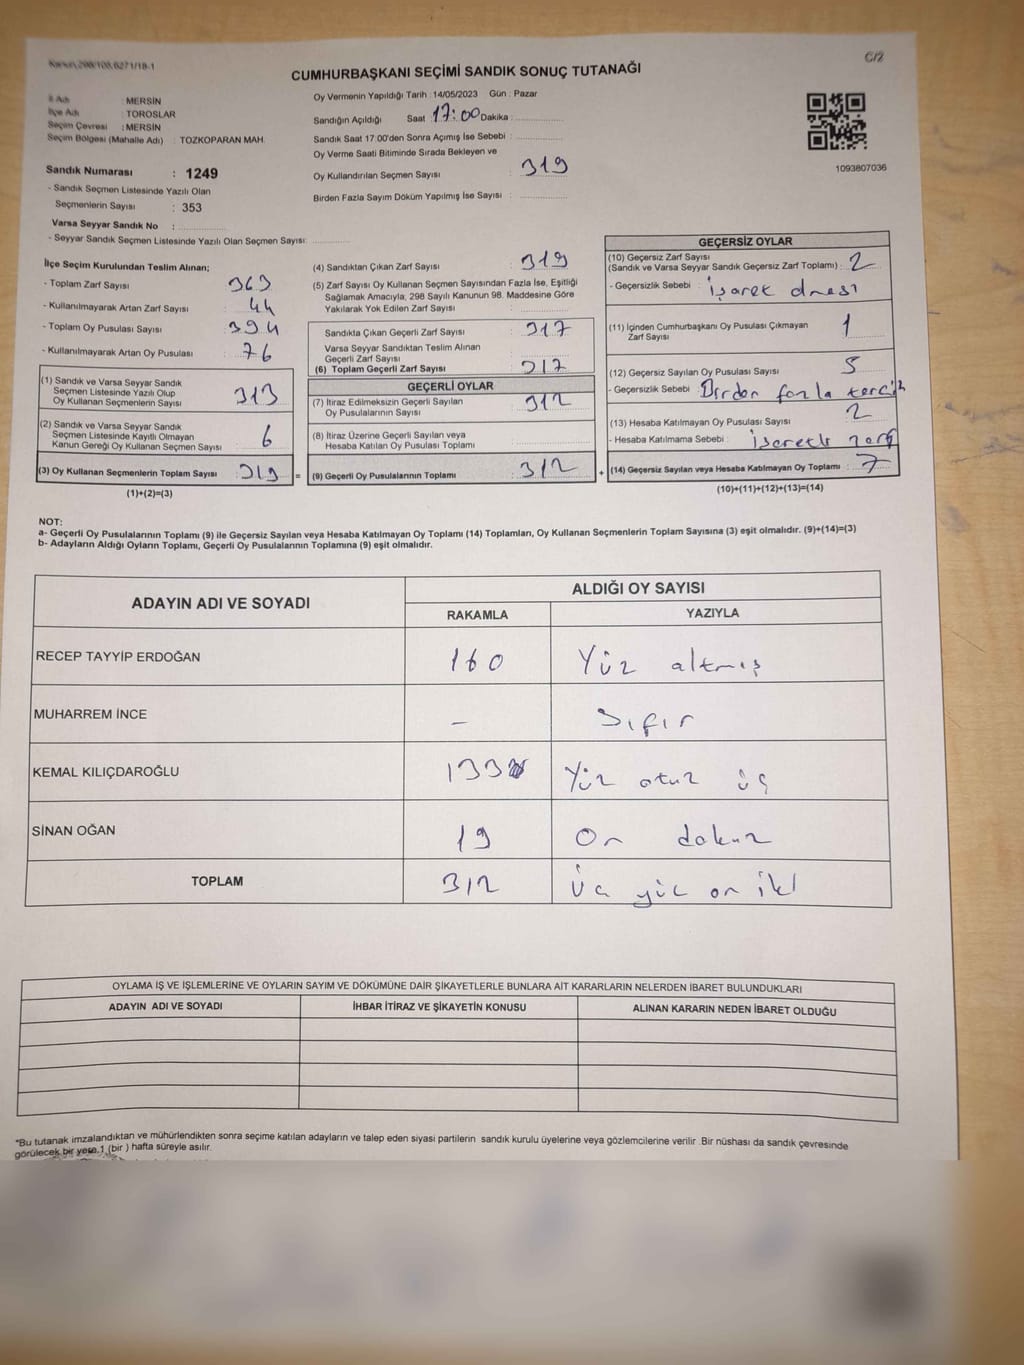 Kanun\298/108,6271/18-1
C/2
CUMHURBAŞKANI SEÇİMİ SANDIK SONUÇ TUTANAĞI
İl Adı : MERSİN
İlçe Adı : TOROSLAR
Seçim Çevresi : MERSİN
Seçim Bölgesi (Mahalle Adı) : TOZKOPARAN MAH.
Sandık Numarası : 1249
- Sandık Seçmen Listesinde Yazılı Olan
Seçmenlerin Sayısı : 353
Varsa Seyyar Sandık No :
- Seyyar Sandık Seçmen Listesinde Yazılı Olan Seçmen Sayısı:
Oy Vermenin Yapıldığı Tarih : 14/05/2023 Gün : Pazar
Sandığın Açıldığı Saat 17:00 Dakika :
Sandık Saat 17.00'den Sonra Açımış İse Sebebi :
Oy Verme Saati Bitiminde Sırada Bekleyen ve
Oy Kullandırılan Seçmen Sayısı : 319
Birden Fazla Sayım Döküm Yapılmış İse Sayısı :
1093807036
İlçe Seçim Kurulundan Teslim Alınan;
- Toplam Zarf Sayısı : 363
- Kullanılmayarak Artan Zarf Sayısı : 44
- Toplam Oy Pusulası Sayısı : 394
- Kullanılmayarak Artan Oy Pusulası : 76
(1) Sandık ve Varsa Seyyar Sandık
Seçmen Listesinde Yazılı Olup
Oy Kullanan Seçmenlerin Sayısı : 313
(2) Sandık ve Varsa Seyyar Sandık
Seçmen Listesinde Kayıtlı Olmayan
Kanun Gereği Oy Kullanan Seçmen Sayısı : 6
(3) Oy Kullanan Seçmenlerin Toplam Sayısı : 319 =
(1)+(2)=(3)
(4) Sandıktan Çıkan Zarf Sayısı : 319
(5) Zarf Sayısı Oy Kullanan Seçmen Sayısından Fazla İse, Eşitliği
Sağlamak Amacıyla, 298 Sayılı Kanunun 98. Maddesine Göre
Yakılarak Yok Edilen Zarf Sayısı :
Sandıkta Çıkan Geçerli Zarf Sayısı : 317
Varsa Seyyar Sandıktan Teslim Alınan
Geçerli Zarf Sayısı
(6) Toplam Geçerli Zarf Sayısı : 317
GEÇERLİ OYLAR
(7) İtiraz Edilmeksizin Geçerli Sayılan
Oy Pusulalarının Sayısı : 312
(8) İtiraz Üzerine Geçerli Sayılan veya
Hesaba Katılan Oy Pusulası Toplamı
(9) Geçerli Oy Pusulalarının Toplamı : 312 +
GEÇERSİZ OYLAR
(10) Geçersiz Zarf Sayısı
(Sandık ve Varsa Seyyar Sandık Geçersiz Zarf Toplamı) : 2
- Geçersizlik Sebebi : işaret
(11) İçinden Cumhurbaşkanı Oy Pusulası Çıkmayan
Zarf Sayısı : 1
(12) Geçersiz Sayılan Oy Pusulası Sayısı : 5
- Geçersizlik Sebebi : Birden fazla tercih
(13) Hesaba Katılmayan Oy Pusulası Sayısı : 2
- Hesaba Katılmama Sebebi : işaretli zarf
(14) Geçersiz Sayılan veya Hesaba Katılmayan Oy Toplamı : 7
(10)+(11)+(12)+(13)=(14)
NOT:
a- Geçerli Oy Pusulalarının Toplamı (9) ile Geçersiz Sayılan veya Hesaba Katılmayan Oy Toplamı (14) Toplamları, Oy Kullanan Seçmenlerin Toplam Sayısına (3) eşit olmalıdır. (9)+(14)=(3)
b- Adayların Aldığı Oyların Toplamı, Geçerli Oy Pusulalarının Toplamına (9) eşit olmalıdır.
ADAYIN ADI VE SOYADI ALDIĞI OY SAYISI
RAKAMLA YAZIYLA
RECEP TAYYİP ERDOĞAN 160 Yüz altmış
MUHARREM İNCE - Sıfır
KEMAL KILIÇDAROĞLU 133 Yüz otuz üç
SİNAN OĞAN 19 On dokuz
TOPLAM 312 üç yüz on iki
OYLAMA İŞ VE İŞLEMLERİNE VE OYLARIN SAYIM VE DÖKÜMÜNE DAİR ŞİKAYETLERLE BUNLARA AİT KARARLARIN NELERDEN İBARET BULUNDUKLARI
ADAYIN ADI VE SOYADI İHBAR İTİRAZ VE ŞİKAYETİN KONUSU ALINAN KARARIN NEDEN İBARET OLDUĞU
*Bu tutanak imzalandıktan ve mühürlendikten sonra seçime katılan adayların ve talep eden siyasi partilerin sandık kurulu üyelerine veya gözlemcilerine verilir .Bir nüshası da sandık çevresinde
görülecek bir yere 1 (bir ) hafta süreyle asılır.